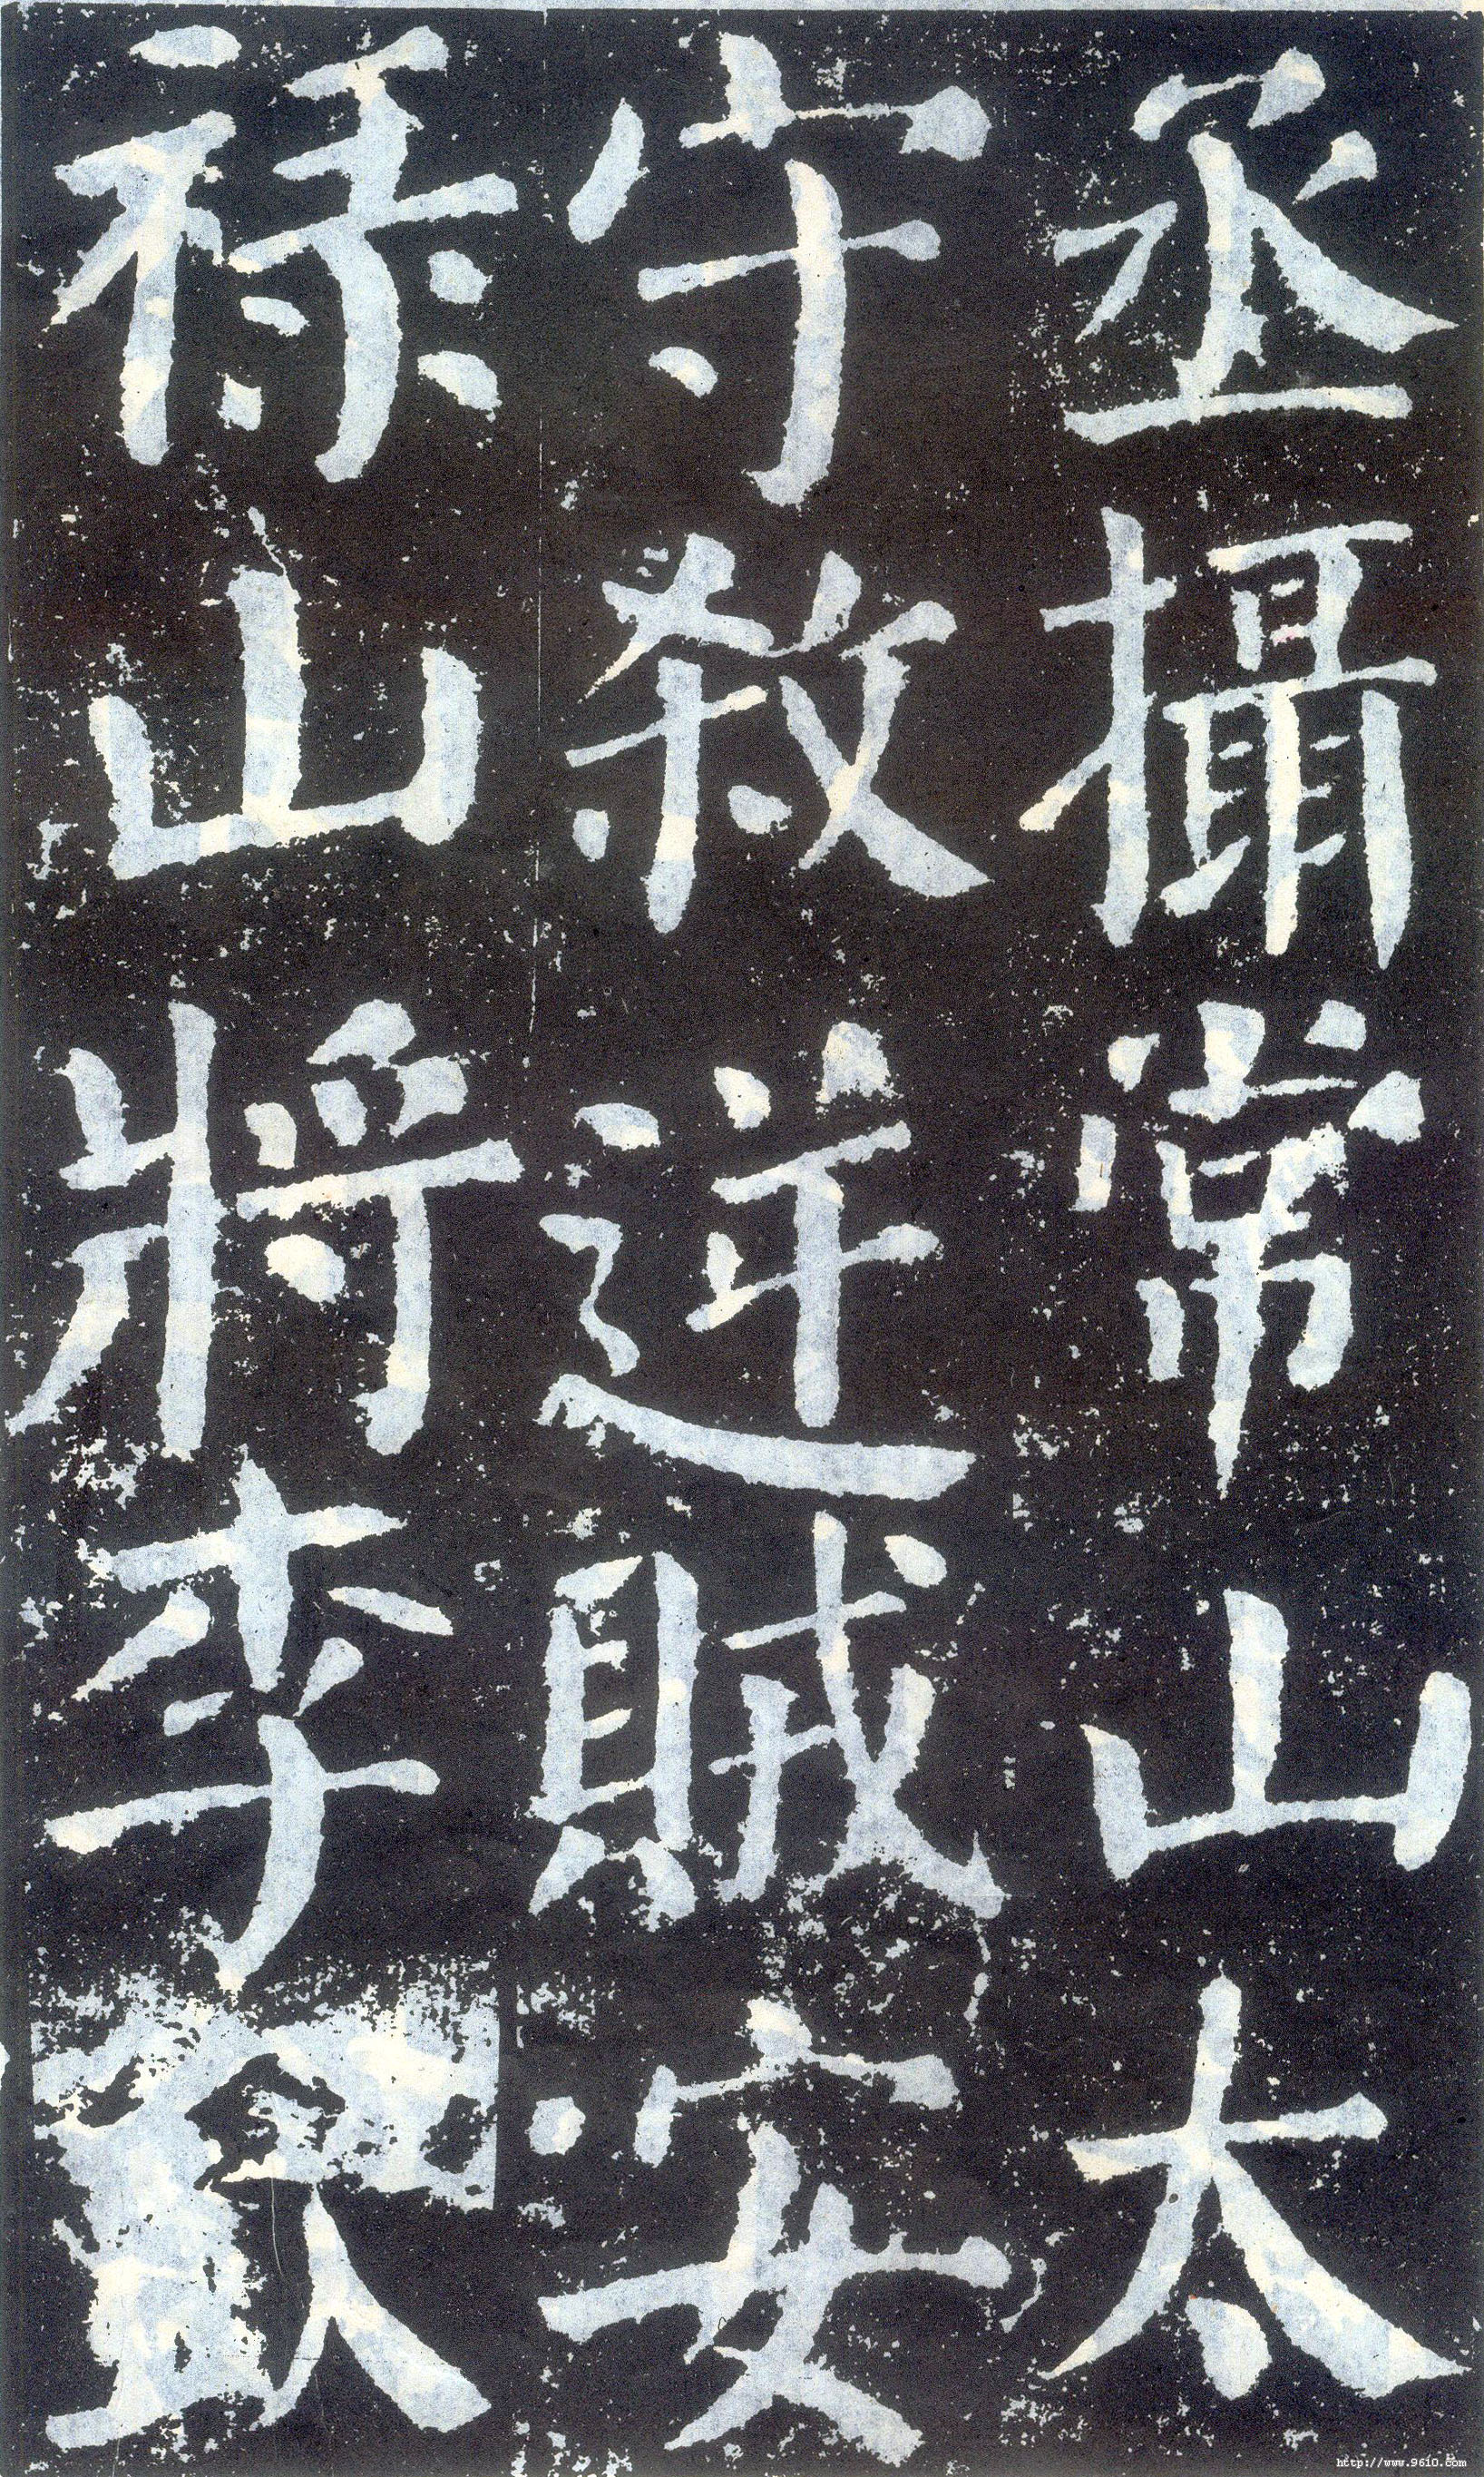 丞攝常山太
守殺逆賊安
祿山將李欽
http://www.9610.com